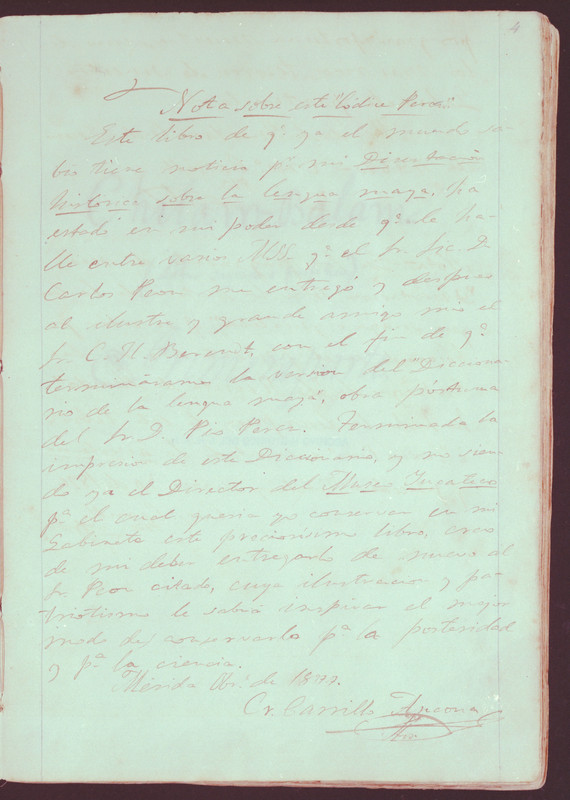 4
Nota sobre este "Codice Perez".
Este libro de q.e ya el mundo sa-
bio tiene noticia p.r mi Disertacion
historica sobre la lengua maya, ha
estado en mi poder desde q.e le ha-
llé entre varios MSS. q.e el Sr. Lic. D.
Carlos Peon me entregó y despues
al ilustre y grande amigo mio el
Sr. C. H. Berendt, con el fin de q.e
termináramos la version del "Dicciona-
rio de la lengua maya", obra póstuma
del Sr. D. Pio Perez. Terminada la
impresion de este Diccionario, y no sien-
do ya el Director del Museo Yucateco
p.a el cual queria yo conservar en mi
Gabinete este preciosisimo libro, creo
de mi deber entregarlo de nuevo al
Sr. Peon citado, cuya ilustracion y pa-
triotismo le sabrá inspirar el mejor
modo de conservarlo p.a la posteridad
y p.a la ciencia.
Mérida de 1877.
Cr. Carrillo Ancona